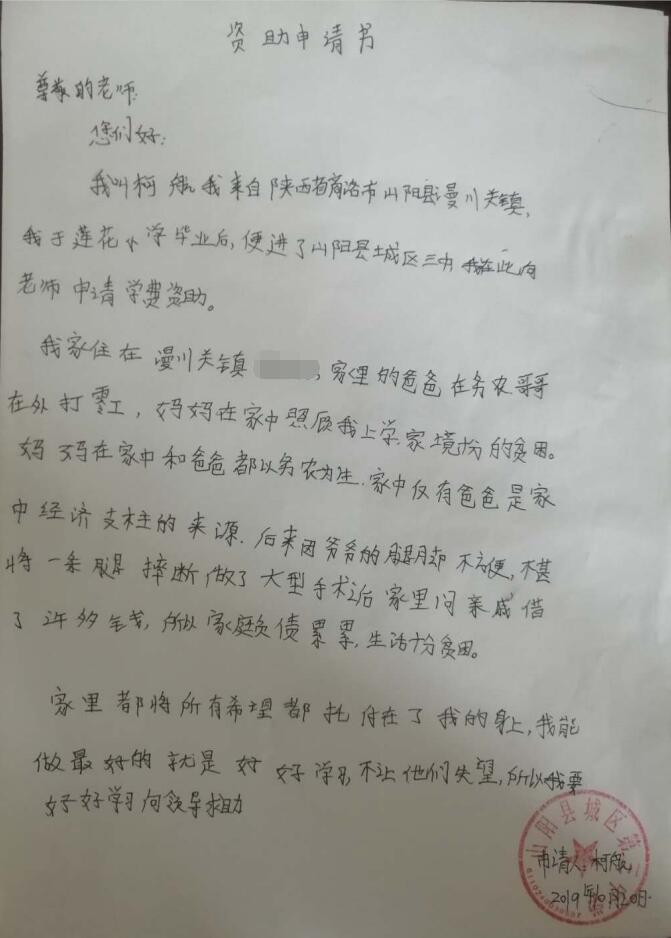 资助申请书
尊敬的老师:
您们好:
我叫柯航我来自陕西省商洛市山阳县漫川关镇,
我于莲花小学毕业后,便进了山阳县城区三中我在此向
老师申请学费资助。
我家住在漫川关镇,家里的爸爸在务农哥哥
在外打零工,妈妈在家中照顾我上学.家境十分的贫困。
妈妈在家中和爸爸都以务农为生.家中仅有爸爸是家
中经济支柱的来源.后来因爷爷的腿脚不方便,不甚
将一条腿摔断做了大型手术后家里问亲戚借
了许多钱,所以家庭负债累累,生活十分贫困。
家里都将所有希望都托付在了我的身上,我能
做最好的就是好好学习,不让他们失望,所以我要
好好学习向领导求助
山阳县城区第三
申请人:柯航
2019年10月20日.